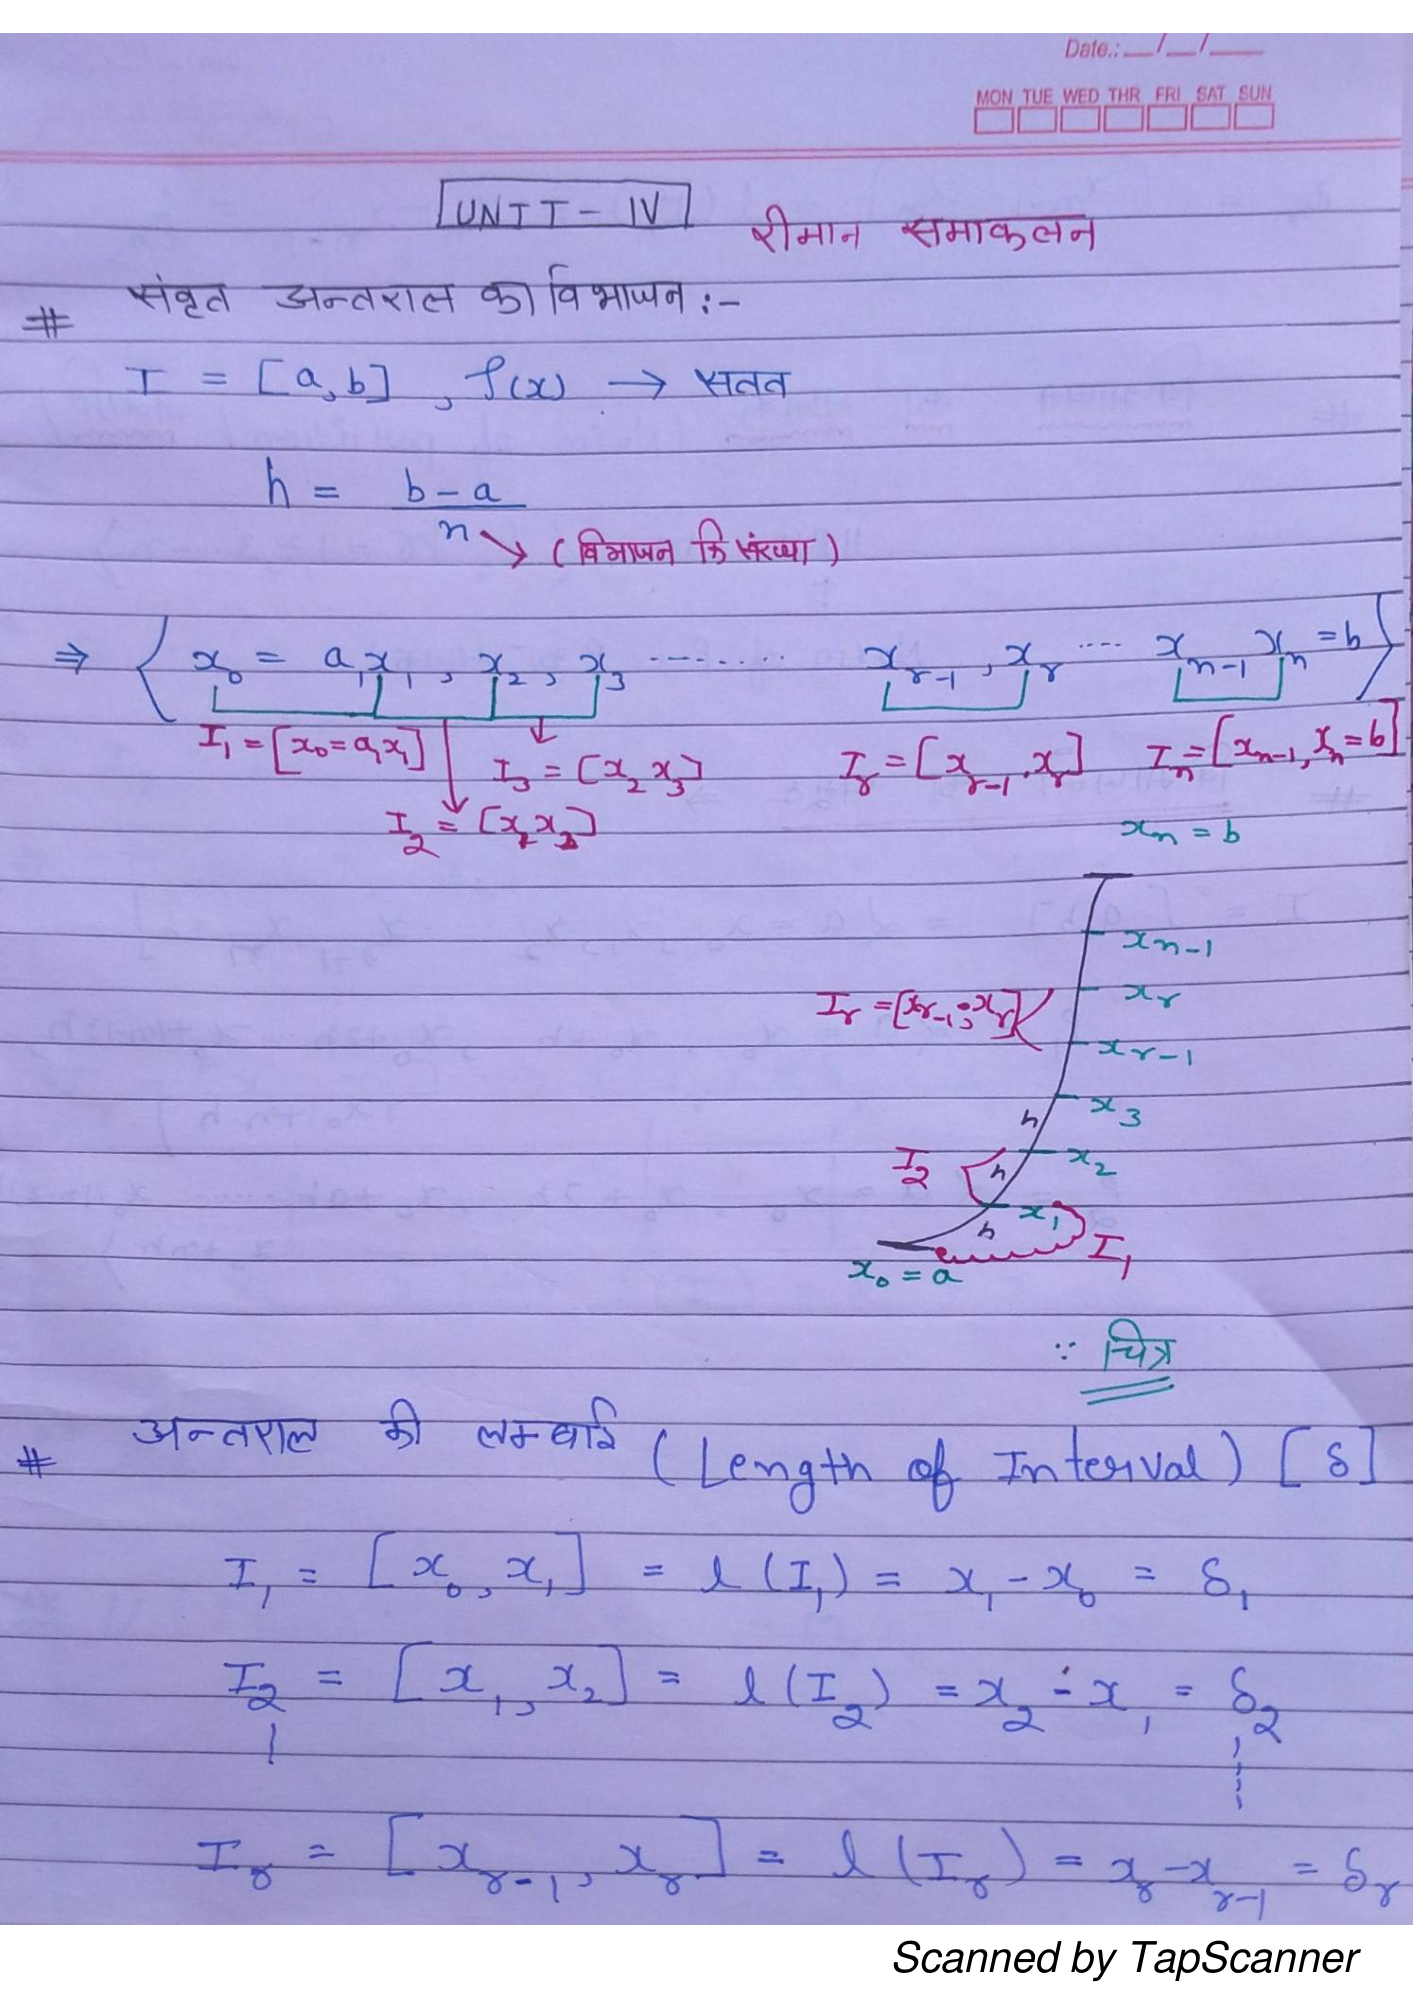 Date.: __/__/__
MON TUE WED THR FRI SAT SUN
UNIT - IV
रीमान समाकलन
# संवृत अन्तराल का विभाजन :-
I = [a, b] , f(x) → सतत
h = b - a / n
→ (विभाजन कि संख्या)
⇒ { x₀ = a, x₁, x₂, x₃ ........ xᵣ₋₁, xᵣ .... xₙ₋₁ xₙ = b }
I₁ = [x₀ = a, x₁]
I₃ = [x₂ x₃]
Iᵣ = [xᵣ₋₁, xᵣ]
Iₙ = [xₙ₋₁, xₙ = b]
I₂ = [x₁ x₂]
xₙ = b
xₙ₋₁
xᵣ
Iᵣ = [xᵣ₋₁, xᵣ]
xᵣ₋₁
x₃
h
I₂
h
x₂
x₁
h
I₁
x₀ = a
∵ चित्र
# अन्तराल की लम्बाई (Length of Interval) [δ]
I₁ = [x₀, x₁] = l(I₁) = x₁ - x₀ = δ₁
I₂ = [x₁, x₂] = l(I₂) = x₂ - x₁ = δ₂
Iᵣ = [xᵣ₋₁, xᵣ] = l(Iᵣ) = xᵣ - xᵣ₋₁ = δᵣ
Scanned by TapScanner